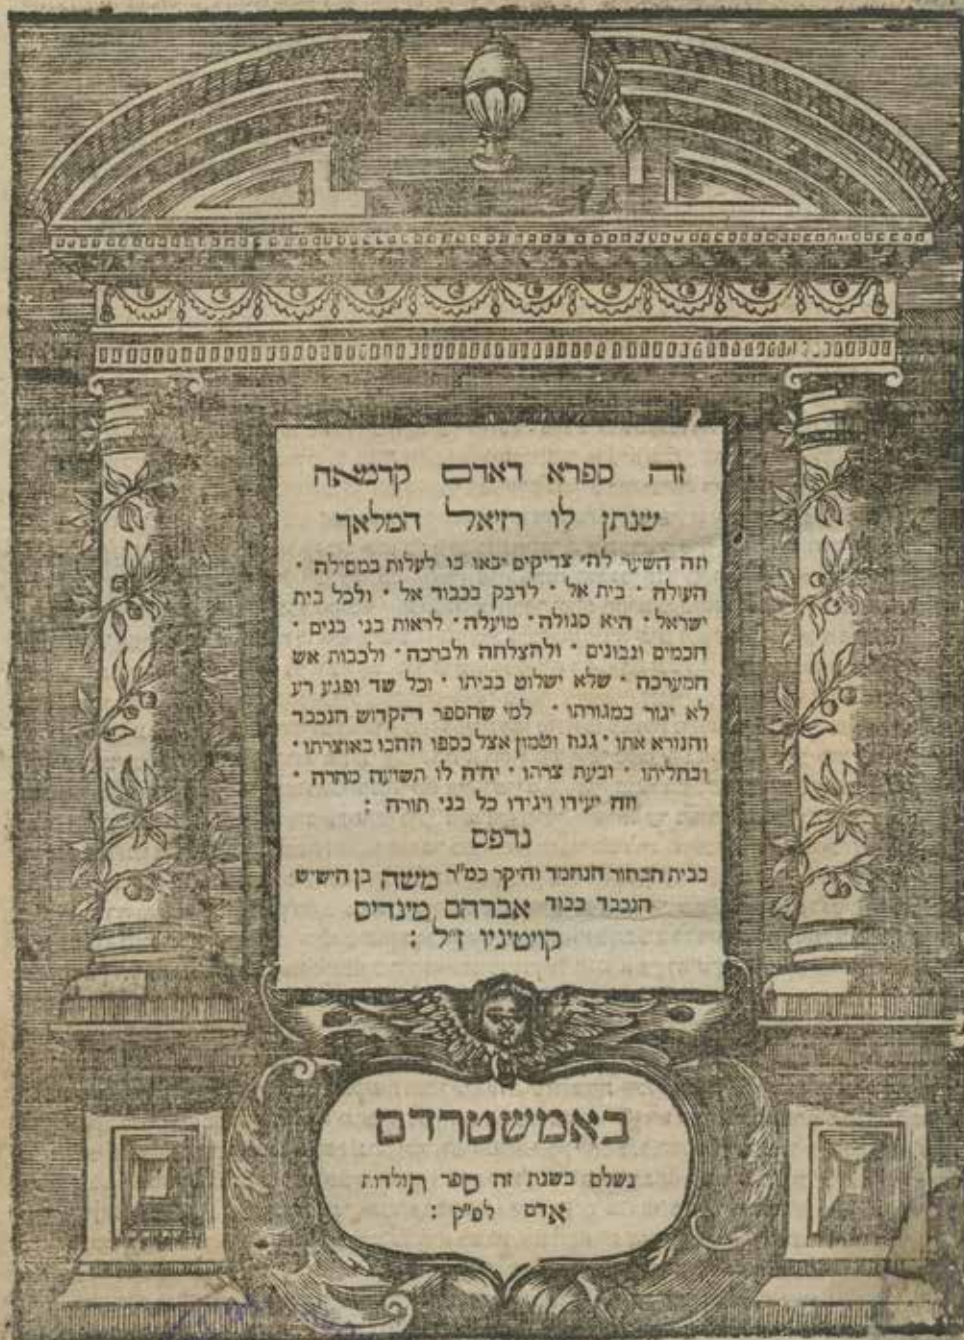 זה ספרא דאדם קדמאה
שנתן לו רזיאל המלאך
וזה השער לה׳ צדיקים יבאו בו לעלות במסילה •
העולה • בית אל • לדבק בכבוד אל • ולכל בית
ישראל • היא סגולה • מועלה • לראות בני בנים •
חכמים ונבונים • ולהצלחה ולברכה • ולכבות אש
המערכה • שלא ישלוט בביתו • וכל שד ופגע רע
לא יגור במגורתו • למי שהספר הקדוש הנכבד
והנורא אתו • גנוז וטמון אצל כספו וזהבו באוצרתו •
ובחליתו • ובעת צרתו • יהיה לו תשועה מהרה •
וזה יעידו ויגידו כל בני תורה :
נדפס
בבית הבחור הנחמד והיקר כמ״ר משה בן הישיש
הנכבד כבוד אברהם מינדיס
קויטיניו ז״ל :
באמשטרדם
נשלם בשנת זה ספר תולדות
אדם לפ״ק :